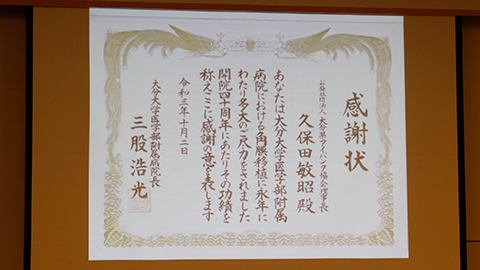 感謝状
公益社団法人 大分県アイバンク協会理事長
久保田敏昭殿
あなたは大分大学医学部附属
病院における角膜移植に永年に
わたり多大のご尽力をされました
開院四十周年にあたりその功績を
称えここに感謝の意を表します
令和三年十月二日
大分大学医学部附属病院長
三股浩光